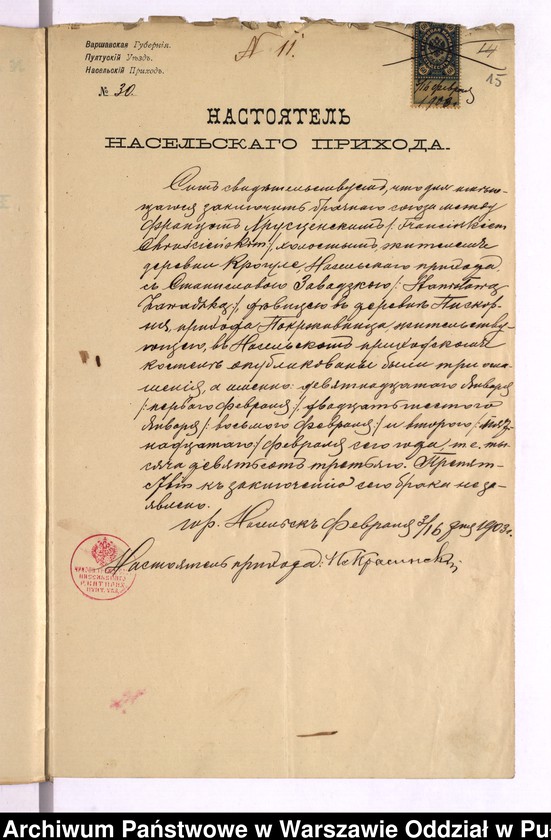 Варшавская Губернія.
Пултускій Уѣздъ.
Насельскій Приходъ.
№ 30.
N 11.
14
15
16 февраля
1903 г.
НАСТОЯТЕЛЬ
НАСЕЛЬСКАГО ПРИХОДА.
Симъ свидѣтельствуетъ, что для
заключить брачнаго союза между
Францомъ Хрусцинскимъ /: Franciszkiem
Chruścińskim :/ холостымъ жителемъ
деревни Крогуле, Насельскаго прихода
съ Станиславою Завадзкою /: Stanisławą
Zawadzką :/, дѣвицею въ деревнѣ
прихода Покржывница, жительству-
ющею, въ Насельскомъ приходскомъ
костелѣ опубликованы были три огла-
шенія, а именно: девятнадцатаго Января
/: перваго Февраля :/, двадцать шестого
Января /: восьмого Февраля :/ и второго /: пят-
надцатаго :/ Февраля сего года, т. е. ты-
сяча девятьсотъ третьяго. Препят-
ствій къ заключенію сего брака не за-
явлено.
гор. Насельскъ Февраля 3/16 дня 1903 г.
Настоятель прихода: Красинскій
НАСЕЛЬСКАГО
Archiwum Państwowe w Warszawie Oddział w Pu